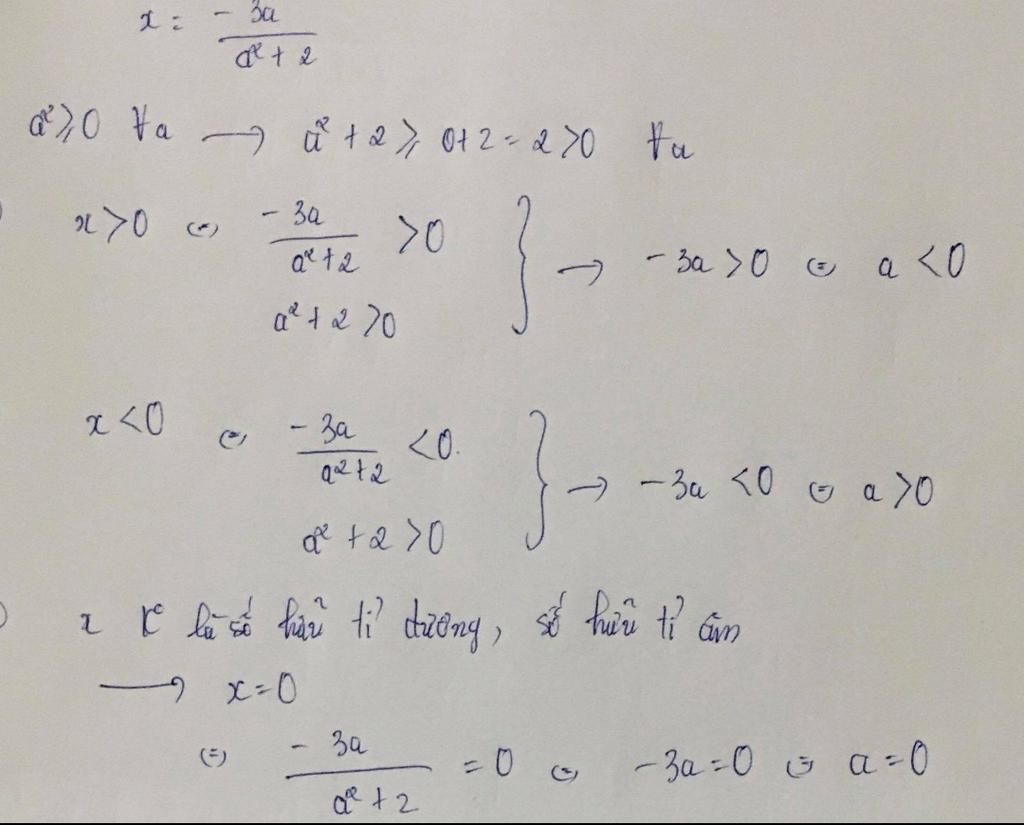 x = -3a/(a²+2)
a² ⩾ 0 ∀a → a² + 2 ⩾ 0+2 = 2 > 0 ∀a
x > 0 ⇔ -3a/(a²+2) > 0
a² + 2 > 0 } → -3a > 0 ⇔ a < 0
x < 0 ⇔ -3a/(a²+2) < 0.
a² + 2 > 0 } → -3a < 0 ⇔ a > 0
x k° là số hữu tỉ dương, số hữu tỉ âm
→ x = 0
⇔ -3a/(a²+2) = 0 ⇔ -3a = 0 ⇔ a = 0